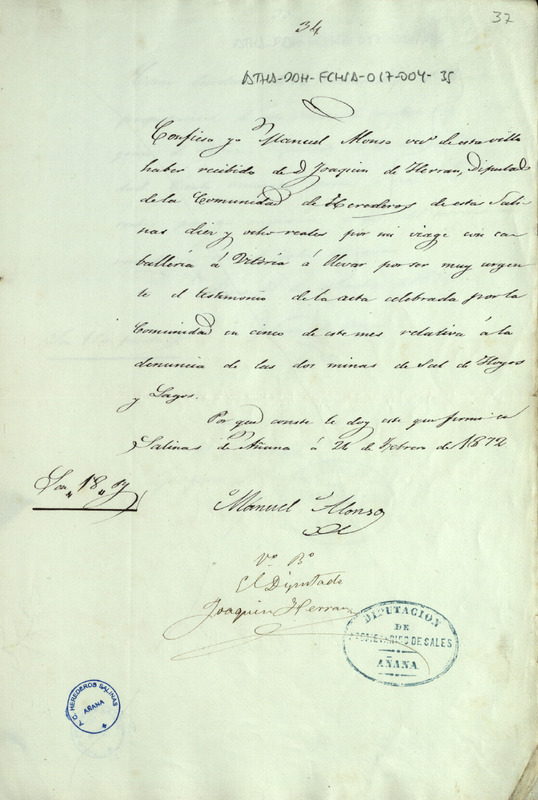 37
34
ATHA-DOH-FCHSA-017-004-35
Confieso yo Manuel Alonso vecº de esta villa
haber recibido de D Joaquin de Herran, Diputado
de la Comunidad de Herederos de estas Sali-
nas diez y ocho reales por mi viage con ca-
balleria á Vitoria á llevar por ser muy urgen-
te el testimonio de la acta celebrada por la
Comunidad en cinco de este mes relativa á la
denuncia de las dos minas de Sal de Hoyos
y Lagos.
Por que conste le doy este que firmo en
Salinas de Añana á 24 de Febrero de 1872
Son 18
Manuel Alonso
Vº Bº
El Diputado
Joaquin Herran
DIPUTACION
DE
PROPIETARIOS DE SALES
AÑANA
HEREDEROS SALINAS
AÑANA